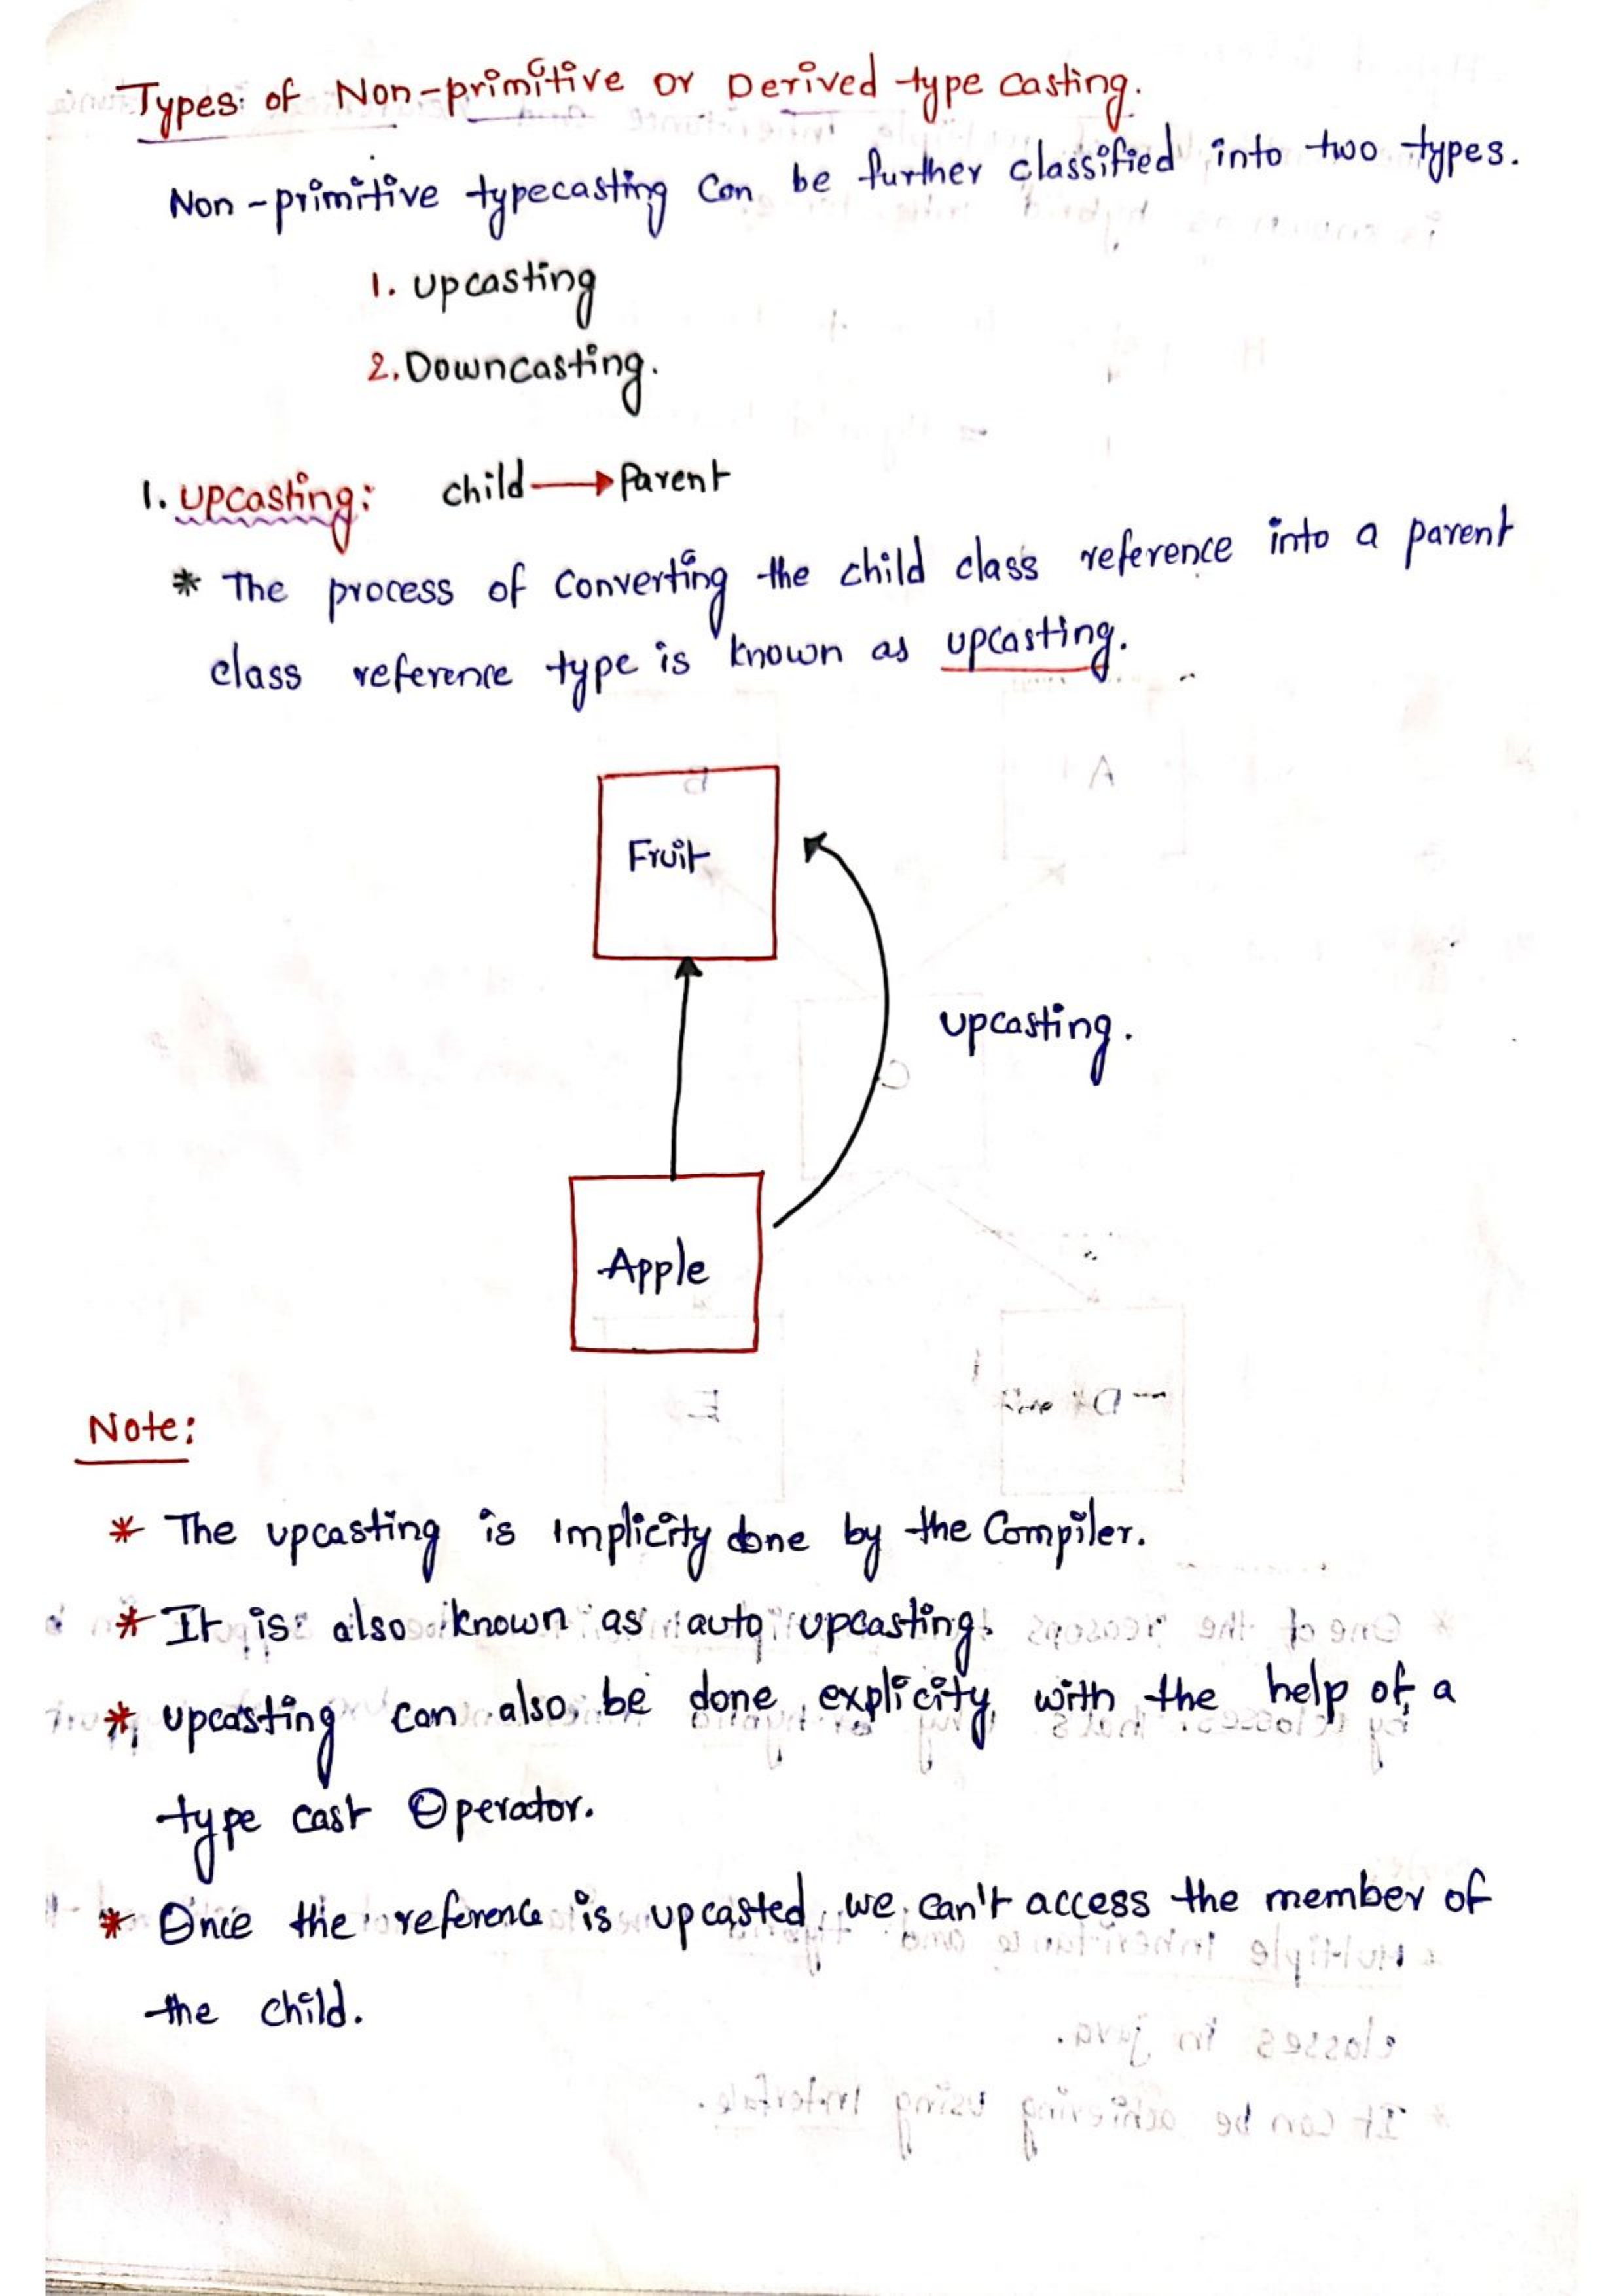 Types of Non-primitive or Derived type casting.
Non-primitive typecasting can be further classified into two types.
1. upcasting
2. Downcasting.
1. upcasting: child → Parent
* The process of converting the child class reference into a parent
class reference type is known as upcasting.
Fruit
upcasting.
Apple
Note:
* The upcasting is implicity done by the Compiler.
* It is also known as auto upcasting.
* upcasting can also be done explicity with the help of a
type cast Operator.
* Once the reference is upcasted we can't access the member of
the child.